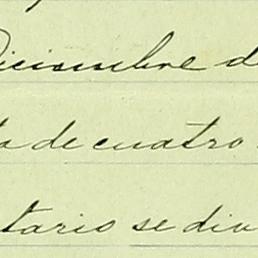 Diciembre d
ta de cuatro
tario se div